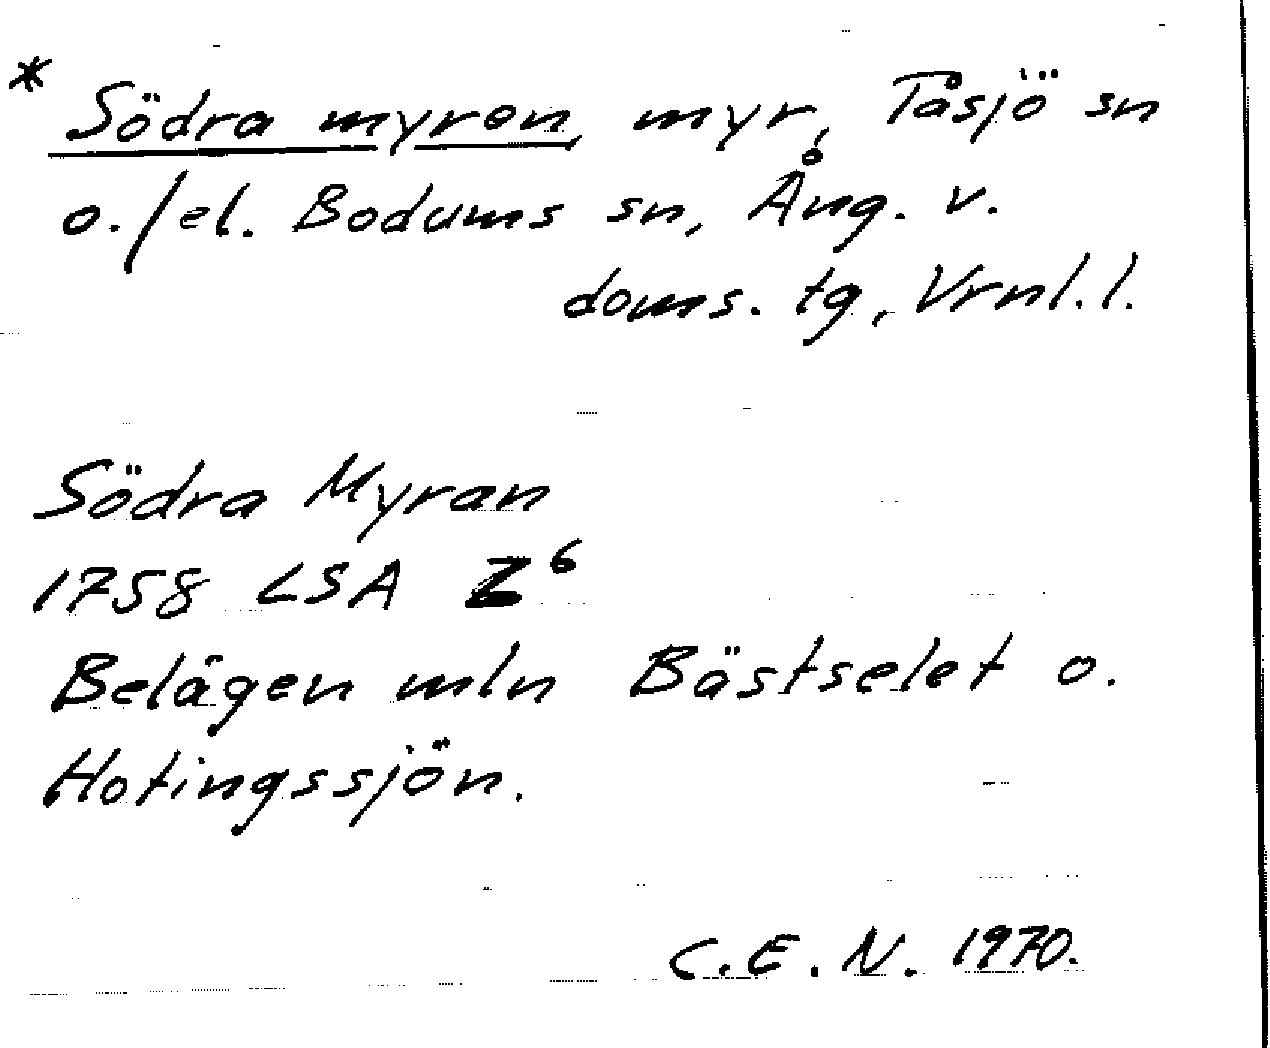 * Södra myren, myr, Tåsjö sn
o./el. Bodums sn, Ång. v.
doms. tg, Vrnl. l.
Södra Myran
1758 LSA Z⁶
Belägen mln Bästselet o.
Hotingssjön.
C. E. N. 1970.